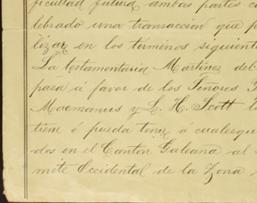 ficultad futura ambas partes c
lebrado una transaccion que p
lizar en los terminos siguient
La testamentaria Martinez deb
pasa á favor de los Señores
Macmanus y L. H. Scott
tiene ó pueda tener á cualesqu
dos en el Canton Galeana al
mite Occidental de la Zona